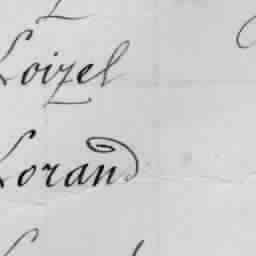 Loizel
Lorand